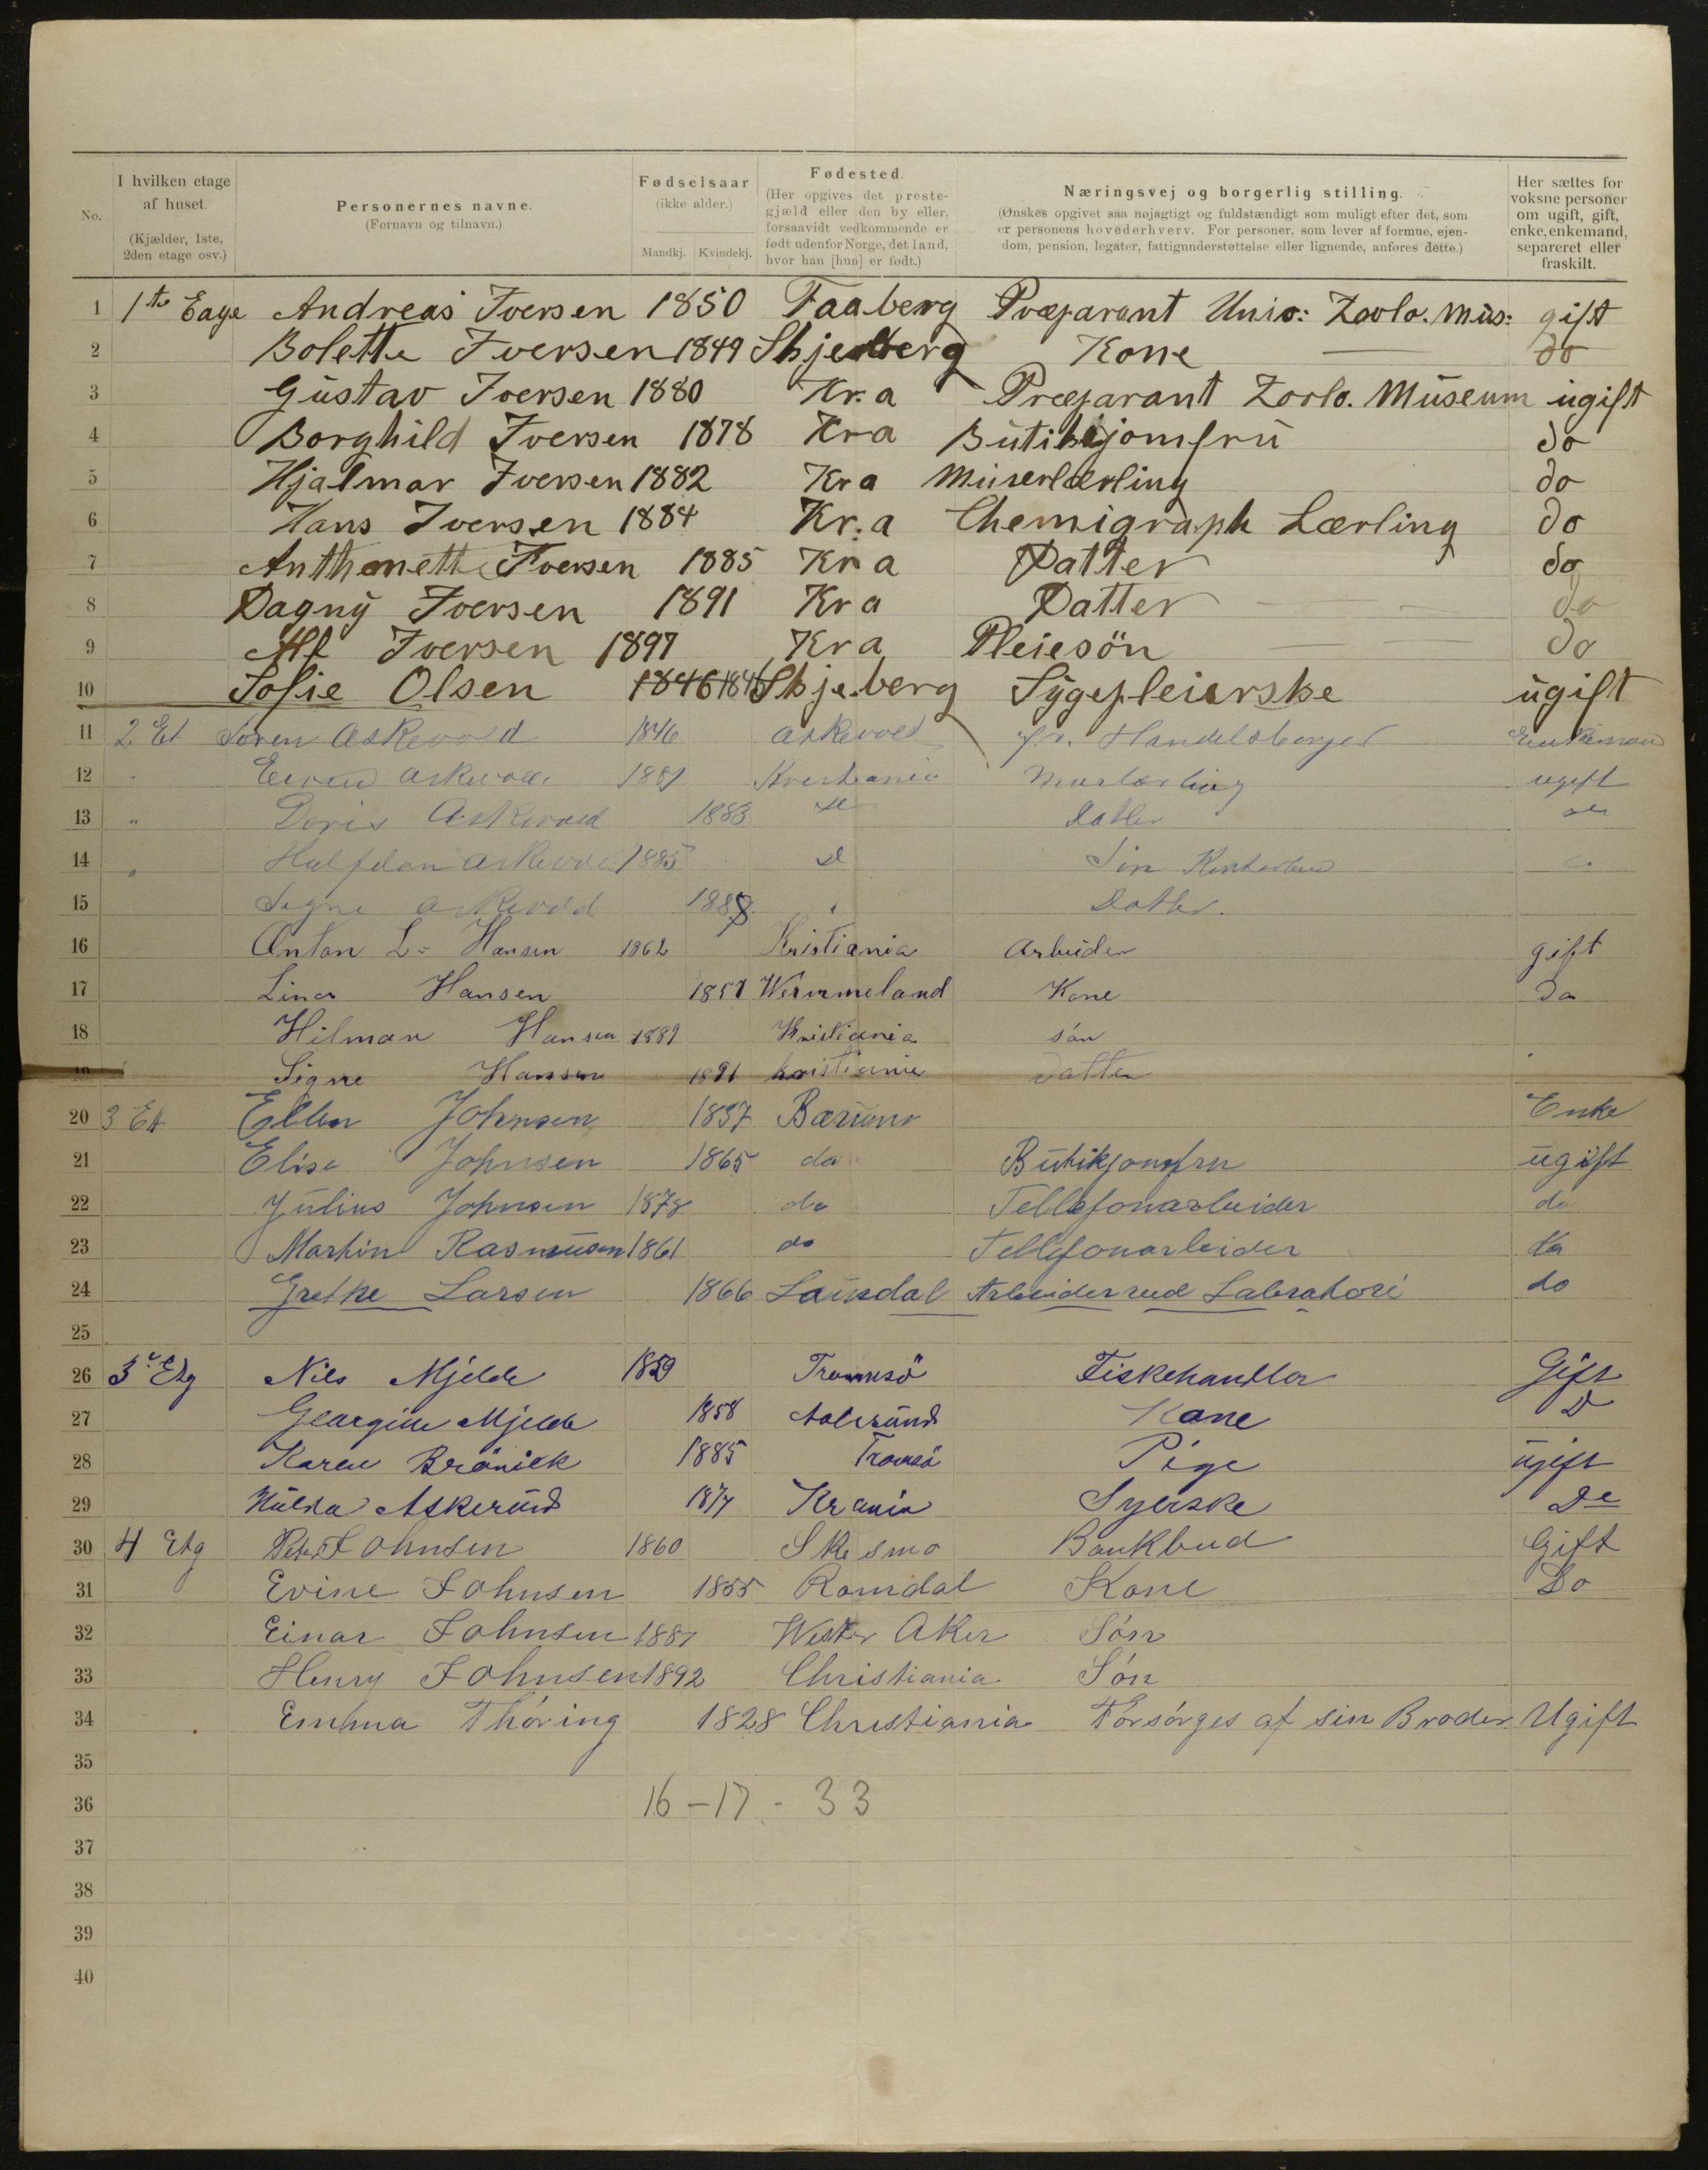 No.
I hvilken etage af huset.
(Kjælder, 1ste, 2den etage osv.)
Personernes navne.
(Fornavn og tilnavn.)
Fødselsaar
(ikke alder.)
Mandkj. Kvindekj.
Fødested.
(Her opgives det prestegjæld eller den by eller, forsaavidt vedkommende er født udenfor Norge, det land, hvor han [hun] er født.)
Næringsvej og borgerlig stilling.
(Ønskes opgivet saa nøjagtigt og fuldstændigt som muligt efter det, som er personens hovederhverv. For personer, som lever af formue, ejendom, pension, legater, fattigunderstøttelse eller lignende, anføres dette.)
Her sættes for voksne personer om ugift, gift, enke, enkemand, separeret eller fraskilt.
1 1te Eage Andreas Iversen 1850 Faaberg Præparant Univ: Zoolo. Mus: gift
2 Bolette Iversen 1849 Skjeberg Kone do
3 Gustav Iversen 1880 Kr.a Præparant Zoolo. Museum ugift
4 Borghild Iversen 1878 Kra Butikjomfru do
5 Hjalmar Iversen 1882 Kra Murerlærling do
6 Hans Iversen 1884 Kr.a Chemigraph Lærling do
7 Anthonette Iversen 1885 Kra Datter do
8 Dagny Iversen 1891 Kra Datter do
9 Iversen 1897 Kra Pleiesön do
10 Sofie Olsen 1846 1846 Skjeberg Sygepleierske ugift
11 2 Et Soren Askevold 1846 Askevold fv. Handelsborger Enkemand
12 " Askevold 1881 Kristiania Murlærling ugift
13 " Doris Askevold 1883 Datter
14 " Halfdan Askevold 1885 Sön
15 Signe Askevold 1888 " Datter.
16 Anton L. Hansen 1862 Kristiania Arbeider gift
17 Lina Hansen 1857 Wermmeland Kone Do
18 Hilmar Hansen 1889 Kristiania són
19 Signe Hansen 1891 Kristiania Datter
20 3 Et Ellen Johnsen 1837 Bærum Enke
21 Elise Johnsen 1865 do Butikjomfru ugift
22 Julius Johnsen 1878 do Tellefonarbeider do
23 Martin Rasmusen 1861 do Tellefonarbeider do
24 Grethe Larsen 1866 Laurdal Arbeider ved Labratori do
25
26 3. Etg Nils Mjelde 1859 Tromsö Fiskehandler Gift
27 Georgine Mjelde 1858 Aalesund Kone D
28 Karen Bröniek 1885 Tromsö Pige ugift
29 Hulda Askerud 1877 Krania Syerske De
30 4 Etg Peter Johnsen 1860 Skesmo Bankbud Gift
31 Evine Johnsen 1855 Romdal Kone Do
32 Einar Johnsen 1887 Wester Aker Són
33 Henry Johnsen 1892 Christiania Són
34 Emma Thóring 1828 Christiania Forsórges af sin Broder Ugift
35
36 16 – 17 - 33
37
38
39
40